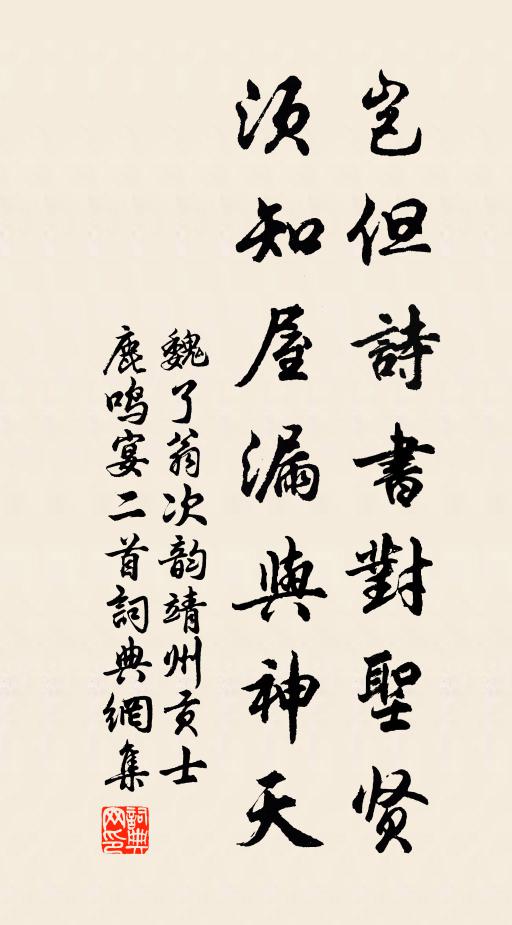 岂但詩書對聖贤
須知屋漏與神天
魏了翁次韵靖州贡士
鹿鸣宴二首詞典網集
詞典网印